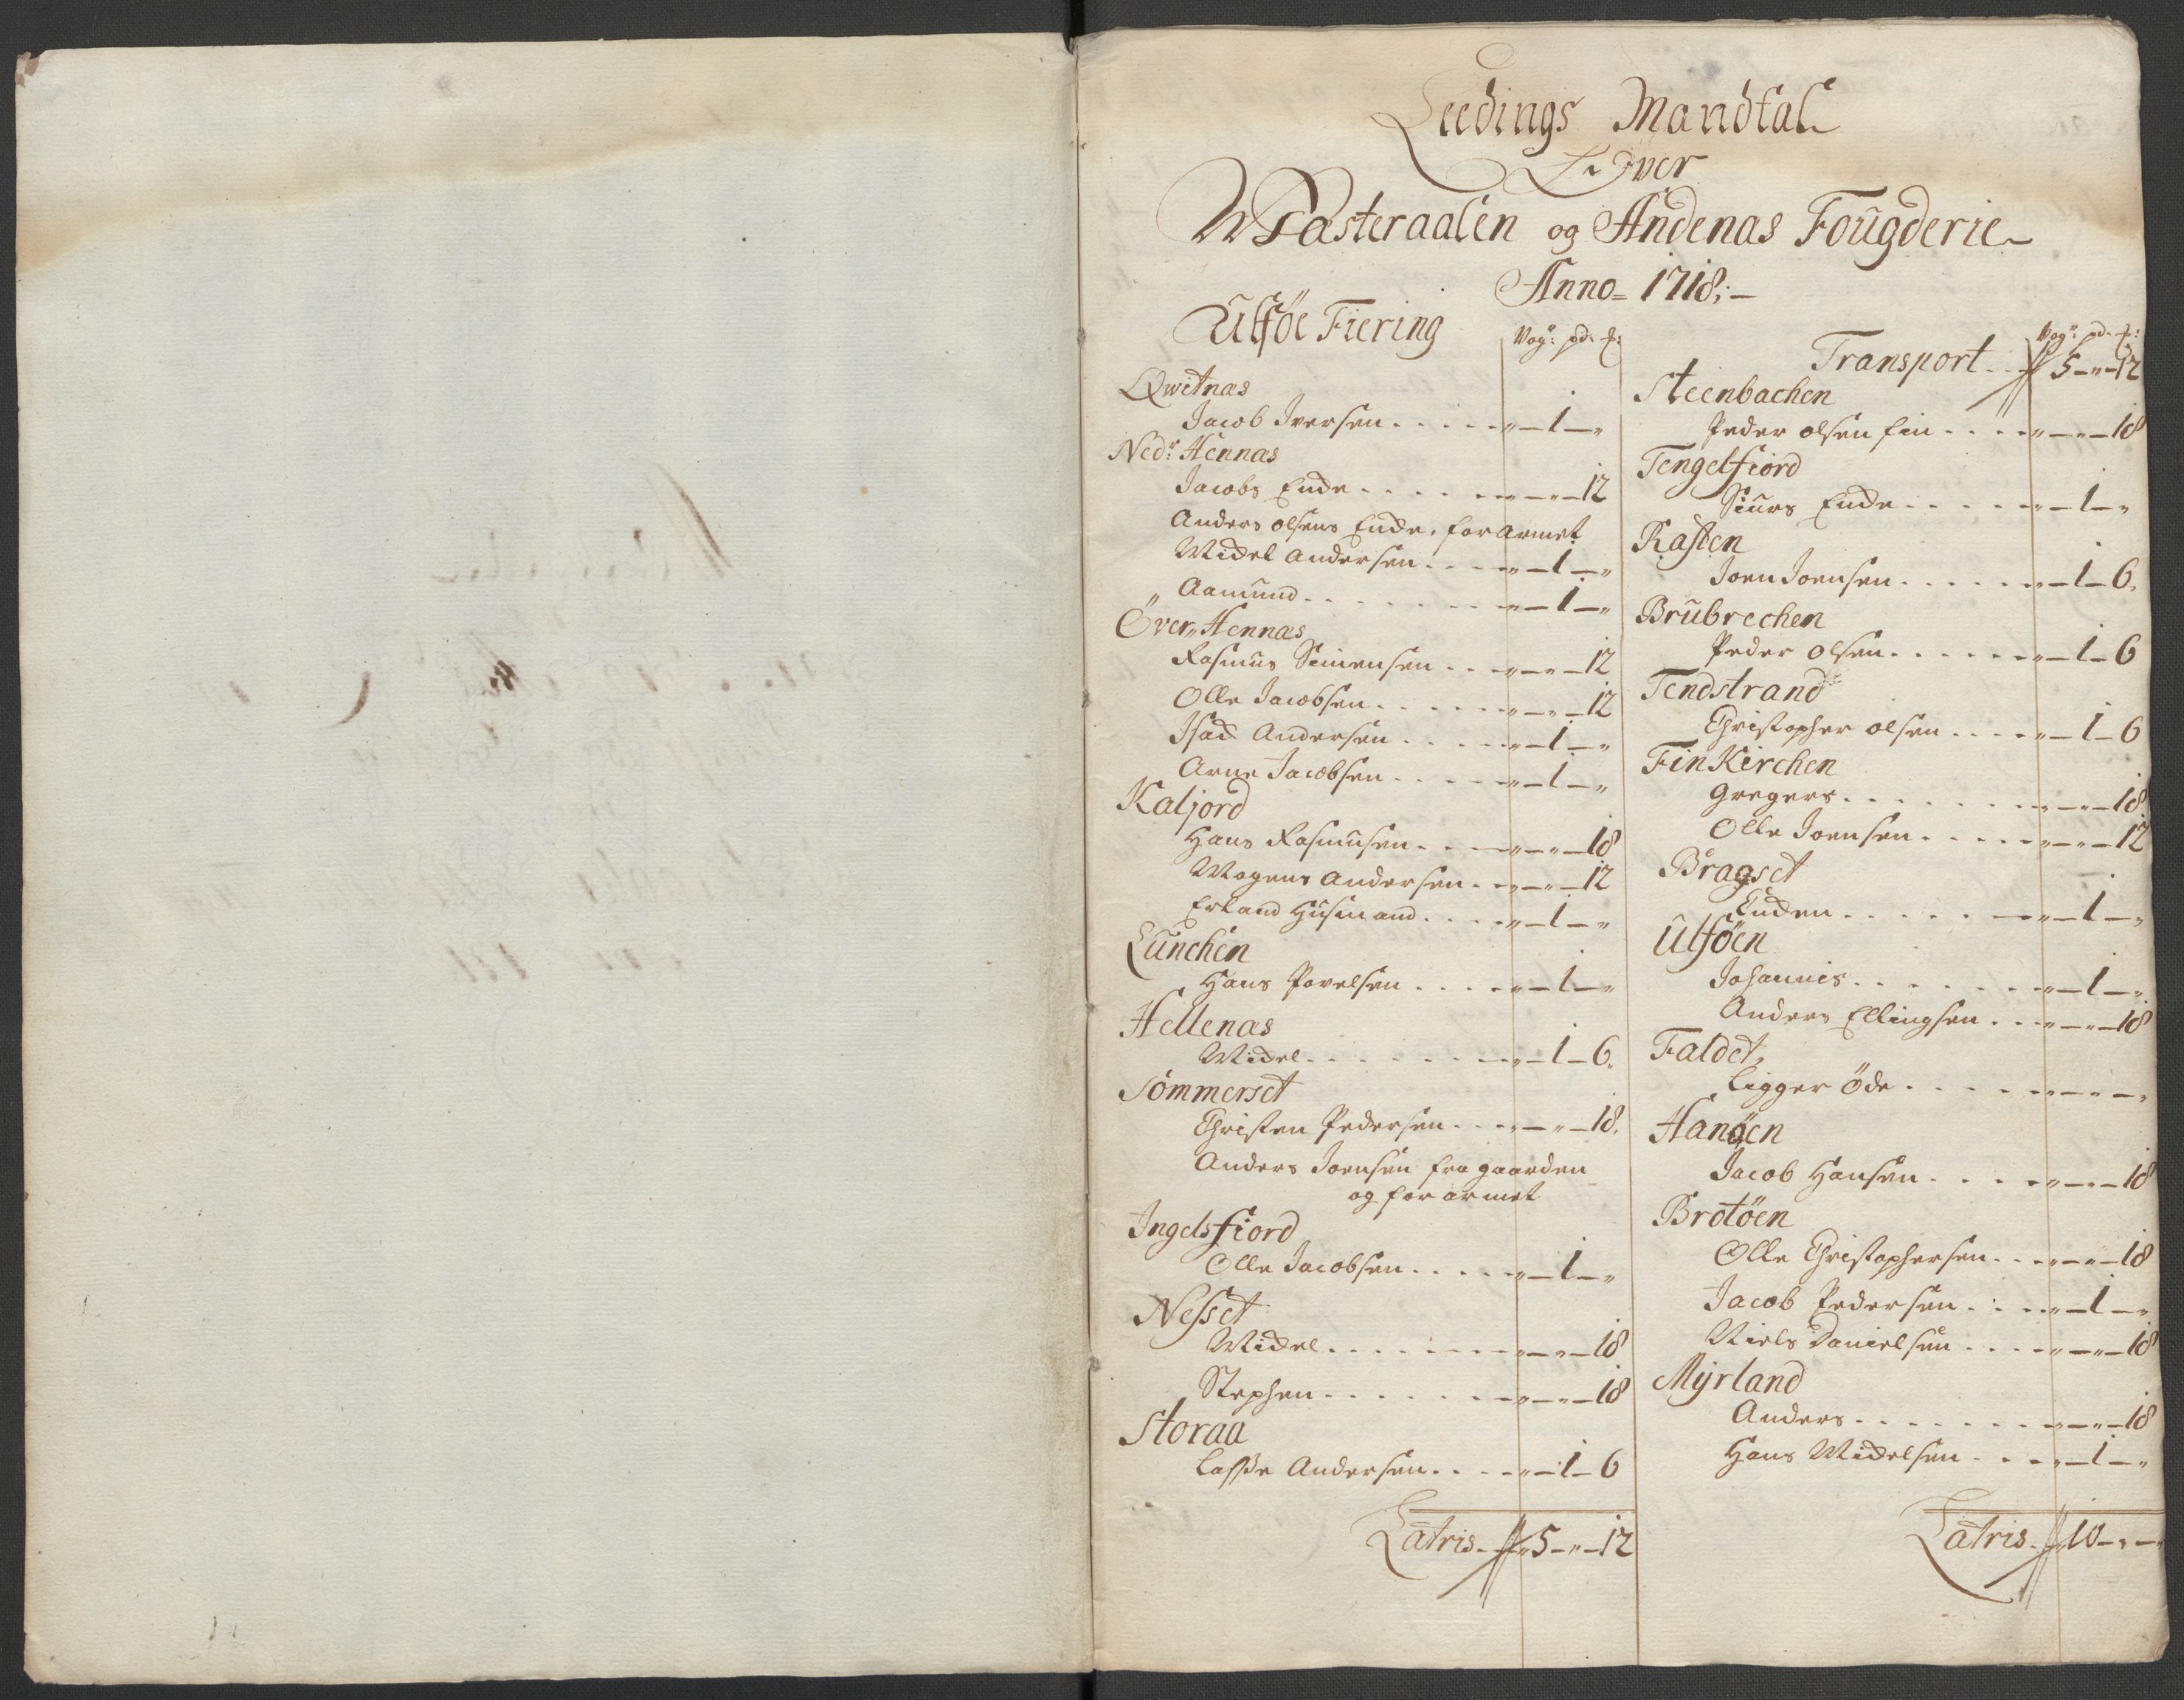 Leedings Mandtal
Over
Wæsteraalen og Andenæs Fougderie
Anno 1718;
Ulföe Fiering
Vog: pd. ℔:
Qwitnæs
Jacob Iversen . . . . . „ — 1 — „
Ned: Hennæs
Jacobs Encke . . . . „ — „ — 12
Anders olsens Encke, forarmet
Michel Andersen . . . . „ — 1 — „
„ Aamund . . . . . . „ — 1 — „
Över, Hennæs
Rasmus Simensen . . . „ — „ — 12
Olle Jacobsen . . . . . „ — „ — 12
Isach Andersen . . . . . „ — 1 — „
Arne Jacobsen . . . . . „ — 1 — „
Kaljord
Hans Rasmusen . . . „ — „ — 18
Mogens Andersen . . „ — „ — 12
Erland Husmand . . . . „ — 1 — „
Lunchen
Hans Povelsen . . . . „ — 1 — „
Hellenæs
Michel . . . . . . . „ — 1 — 6.
Sömmerset
Christen Pedersen . . . „ — „ — 18.
Anders Joensen fra gaarden
og forarmet
Ingelsfiord
Olle Jacobsen . . . . . „ — 1 — „
Nesset
Michel . . . . . . . „ — „ — 18
Stephen . . . . . . „ — „ — 18
Storaa
Lasse Andersen . . . . „ — 1 — 6
Latris . . 5 — „ — 12
Vog: pd. ℔:
Transport . . 5 — „ — 12
Steenbachen
Peder olsen fin . . . . „ — „ — 18
Tengelfiord
Siurs Encke . . . . . „ — 1 — „
Rasten
Joen Joensen . . . . . „ — 1 — 6.
Brubrechen
Peder olsen . . . . . . „ — 1 — 6
Tendstrand
Christopher olsen . . . . „ — 1 — 6
Finkirchen
Gregers . . . . . . . „ — „ — 18
Olle Joensen . . . . . „ — „ — 12
Bragset
Encken . . . . . . „ — 1 — „
Ulföen
Johannis . . . . . . . „ — 1 — „
Anders Ellingsen . . . „ — „ — 18
Faldet,
Ligger öde . . . . . „ — „ — „
Hanöen
Jacob Hansen . . . . . „ — „ — 18
Brotöen
Olle Christophersen . . . „ — „ — 18
Jacob Pedersen . . . . „ — 1 — „
Niels Danielsen . . . . „ — „ — 18
Myrland
Anders . . . . . . . „ — „ — 18
Hans Michelsen . . . . „ — 1 — „
Latris . . 10 — „ — „